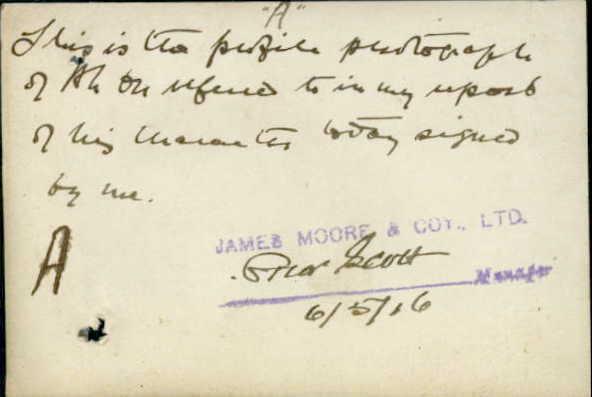 "A"
This is the profile photograph
of Ah On referred to in my report
of his character today signed
by me.
A
JAMES MOORE & COY., LTD.
Scott
Manager
6/5/16